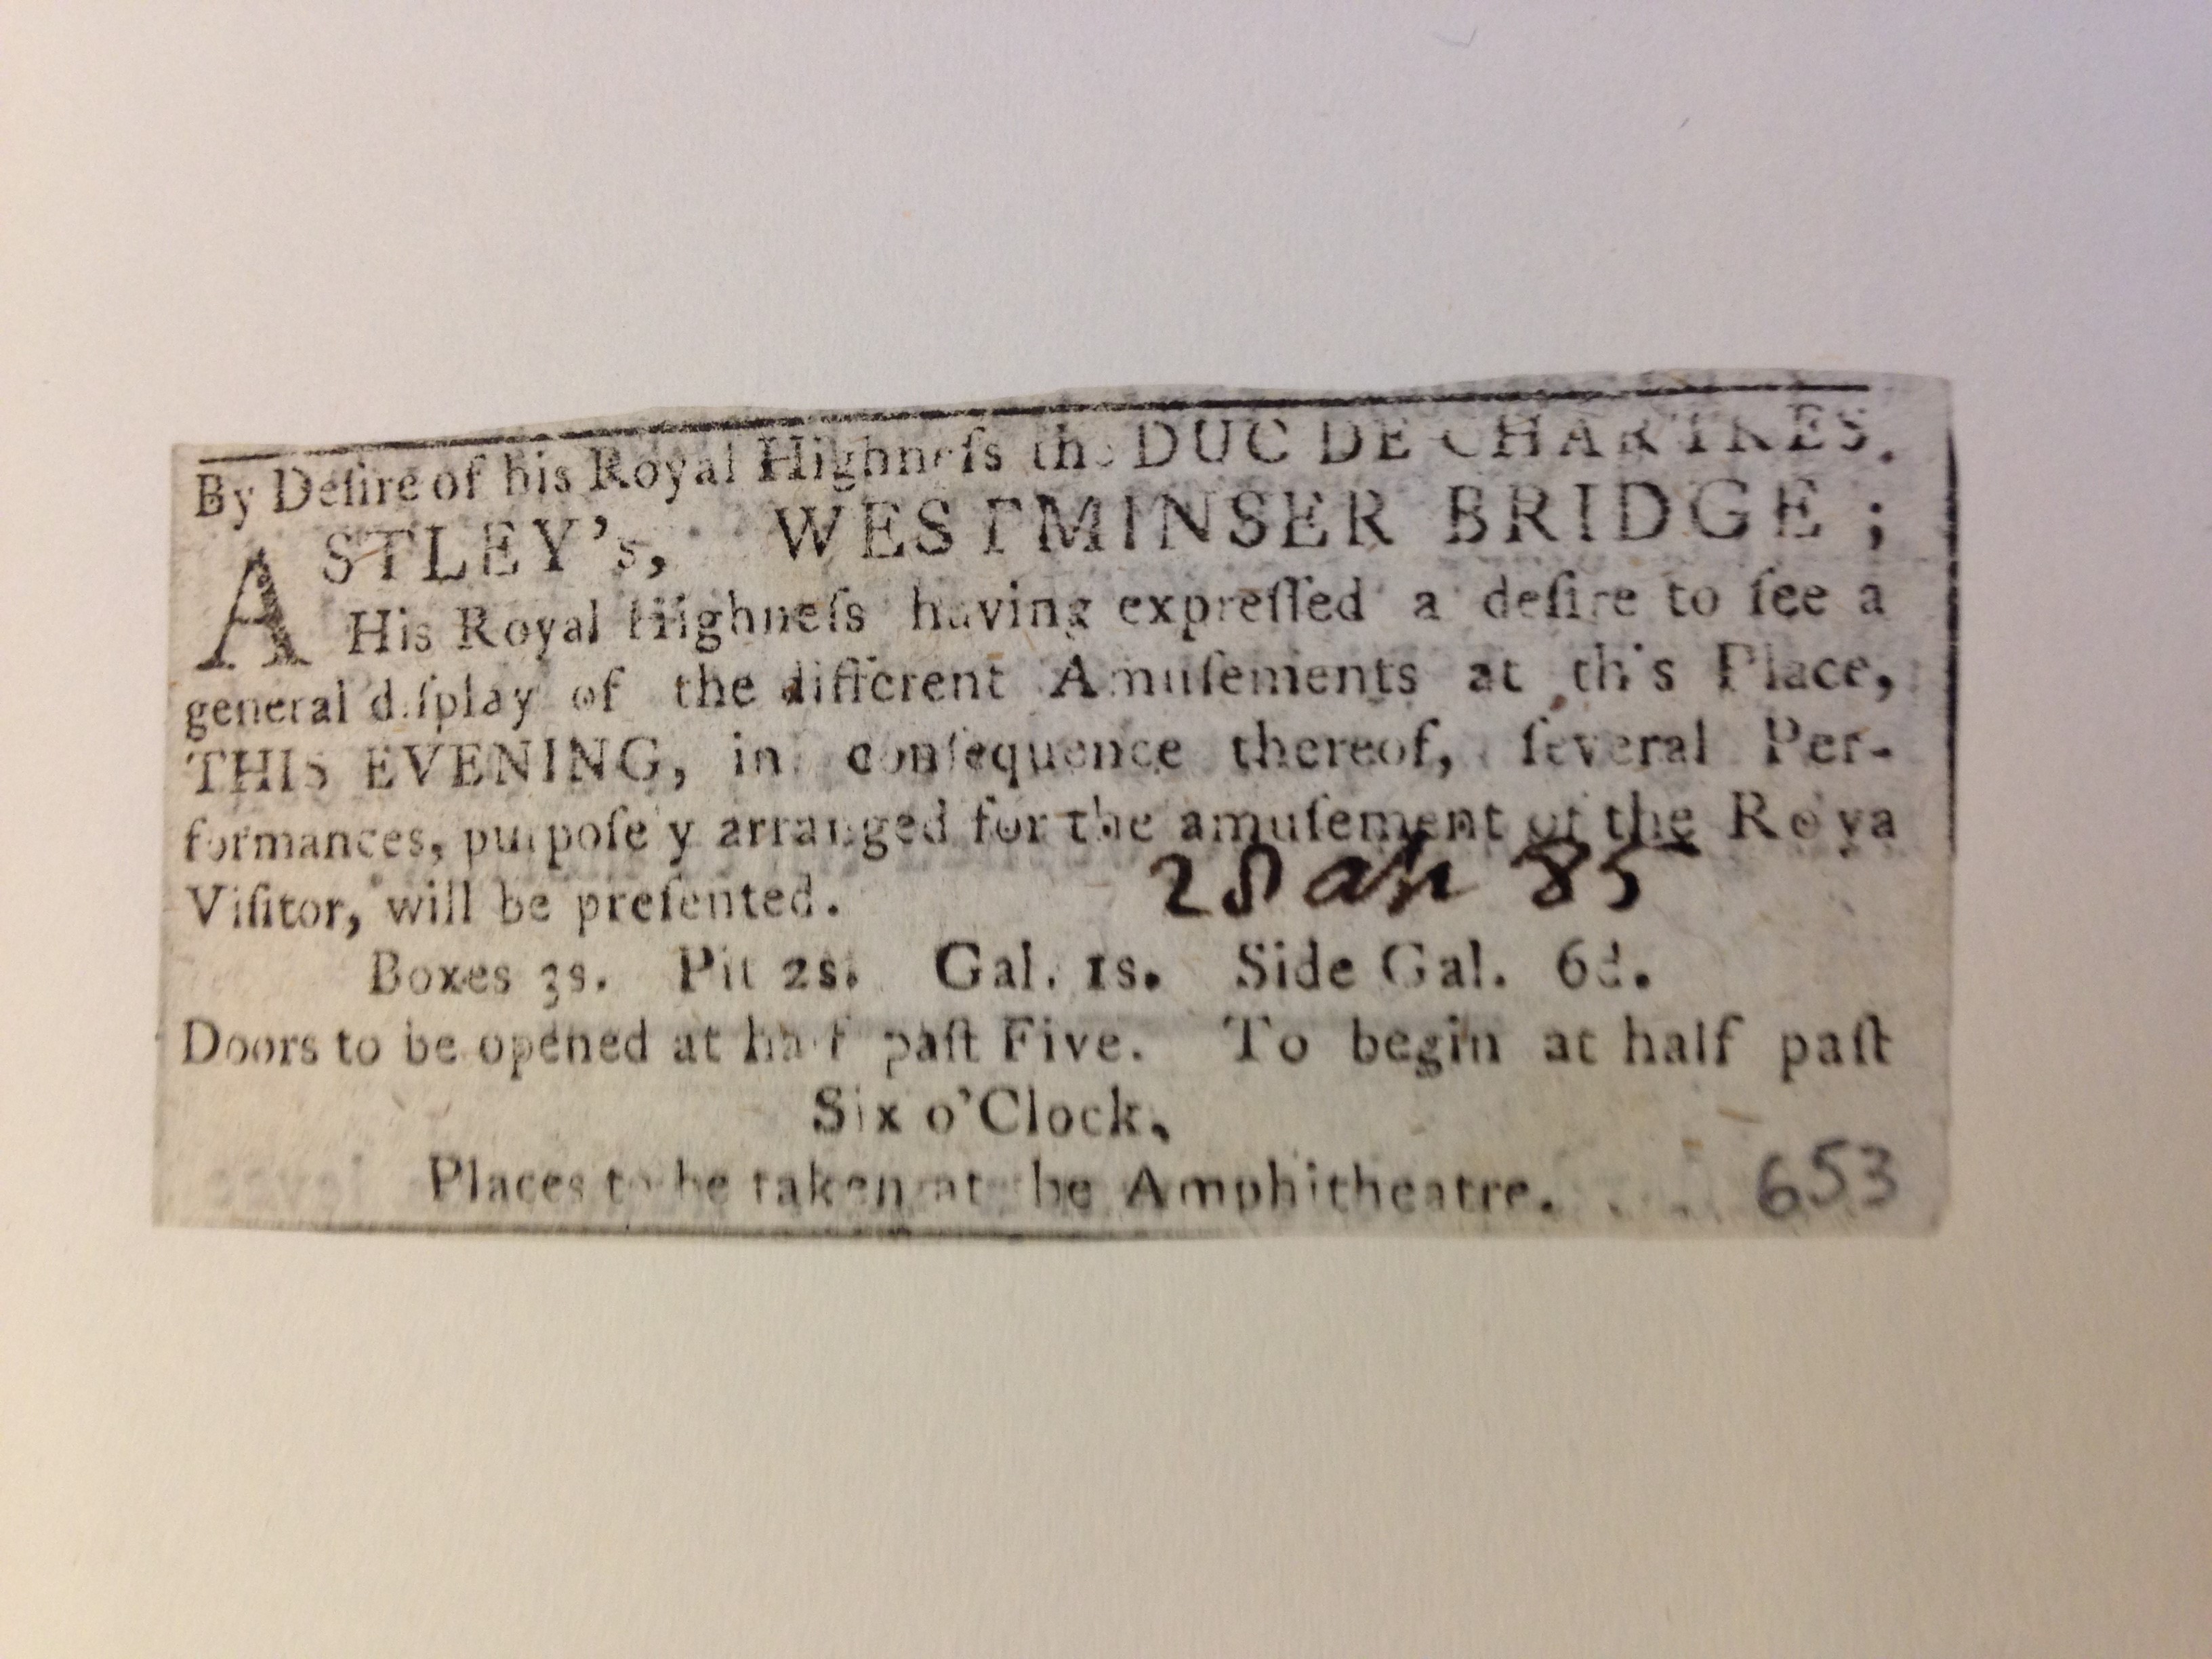 By Deſire of his Royal Highneſs the DUC DE CHARTRES.
ASTLEY's, WESTMINSER BRIDGE;
His Royal Highneſs having expreſſed a deſire to ſee a
general diſplay of the different Amuſements at this Place,
THIS EVENING, in conſequence thereof, ſeveral Per-
formances, purpoſe y arranged for the amuſement of the Roya
Viſitor, will be preſented.
28 ap 85
Boxes 3s. Pit 2s. Gal. 1s. Side Gal. 6d.
Doors to be opened at half paſt Five. To begin at half paſt
Six o'Clock.
Places to be taken at he Amphitheatre.
653